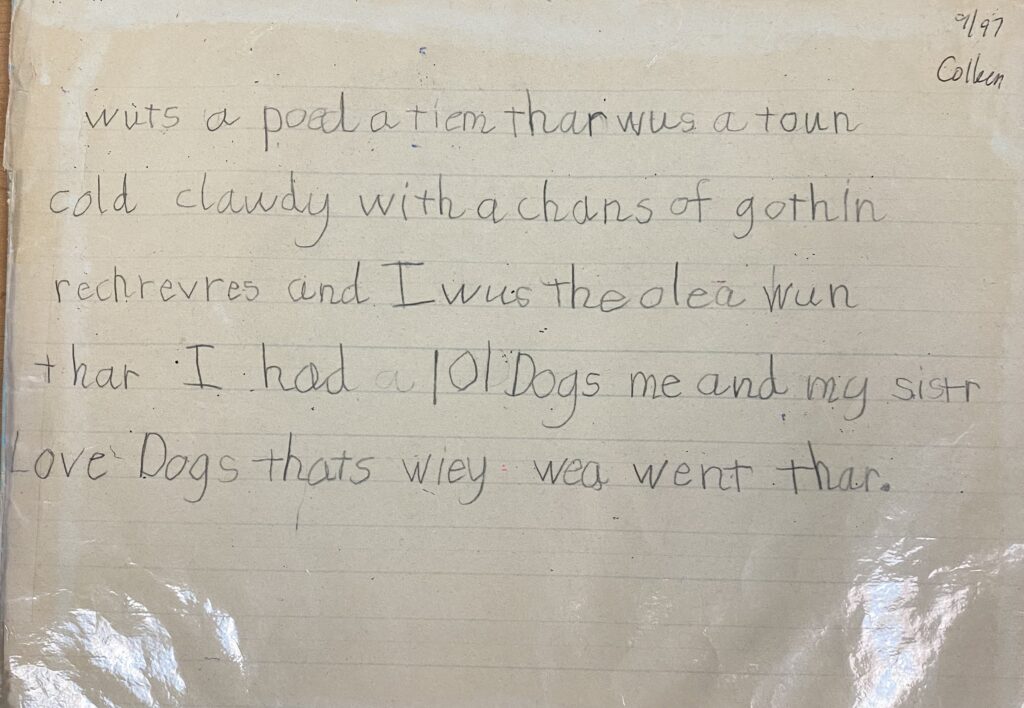 9/97
Colleen
wuts a poed a tiem thar wus a toun
cold clawdy with a chans of gothln
rechrevres and I wus the olea wun
thar I had a 101 Dogs me and my sistr
Love Dogs thats wiey wea went thar.